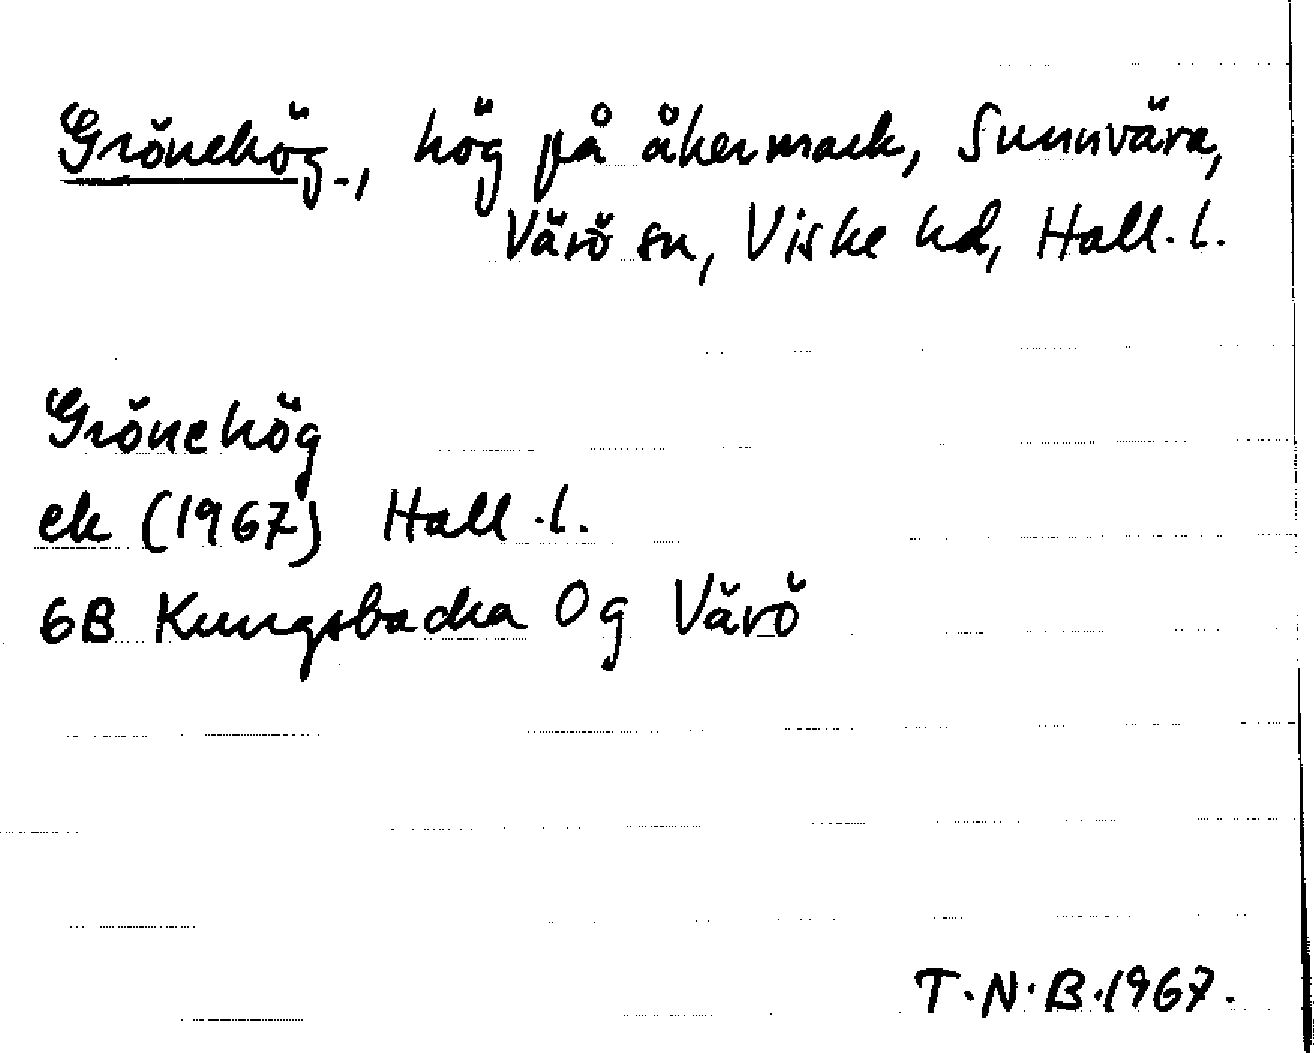 Grönehög, hög på åkermark, Sunnvära,
Värö sn, Viske hd, Hall. l.
Grönehög
ek (1967) Hall. l.
6B Kungsbacka 0g Värö
T.N.B. 1967.